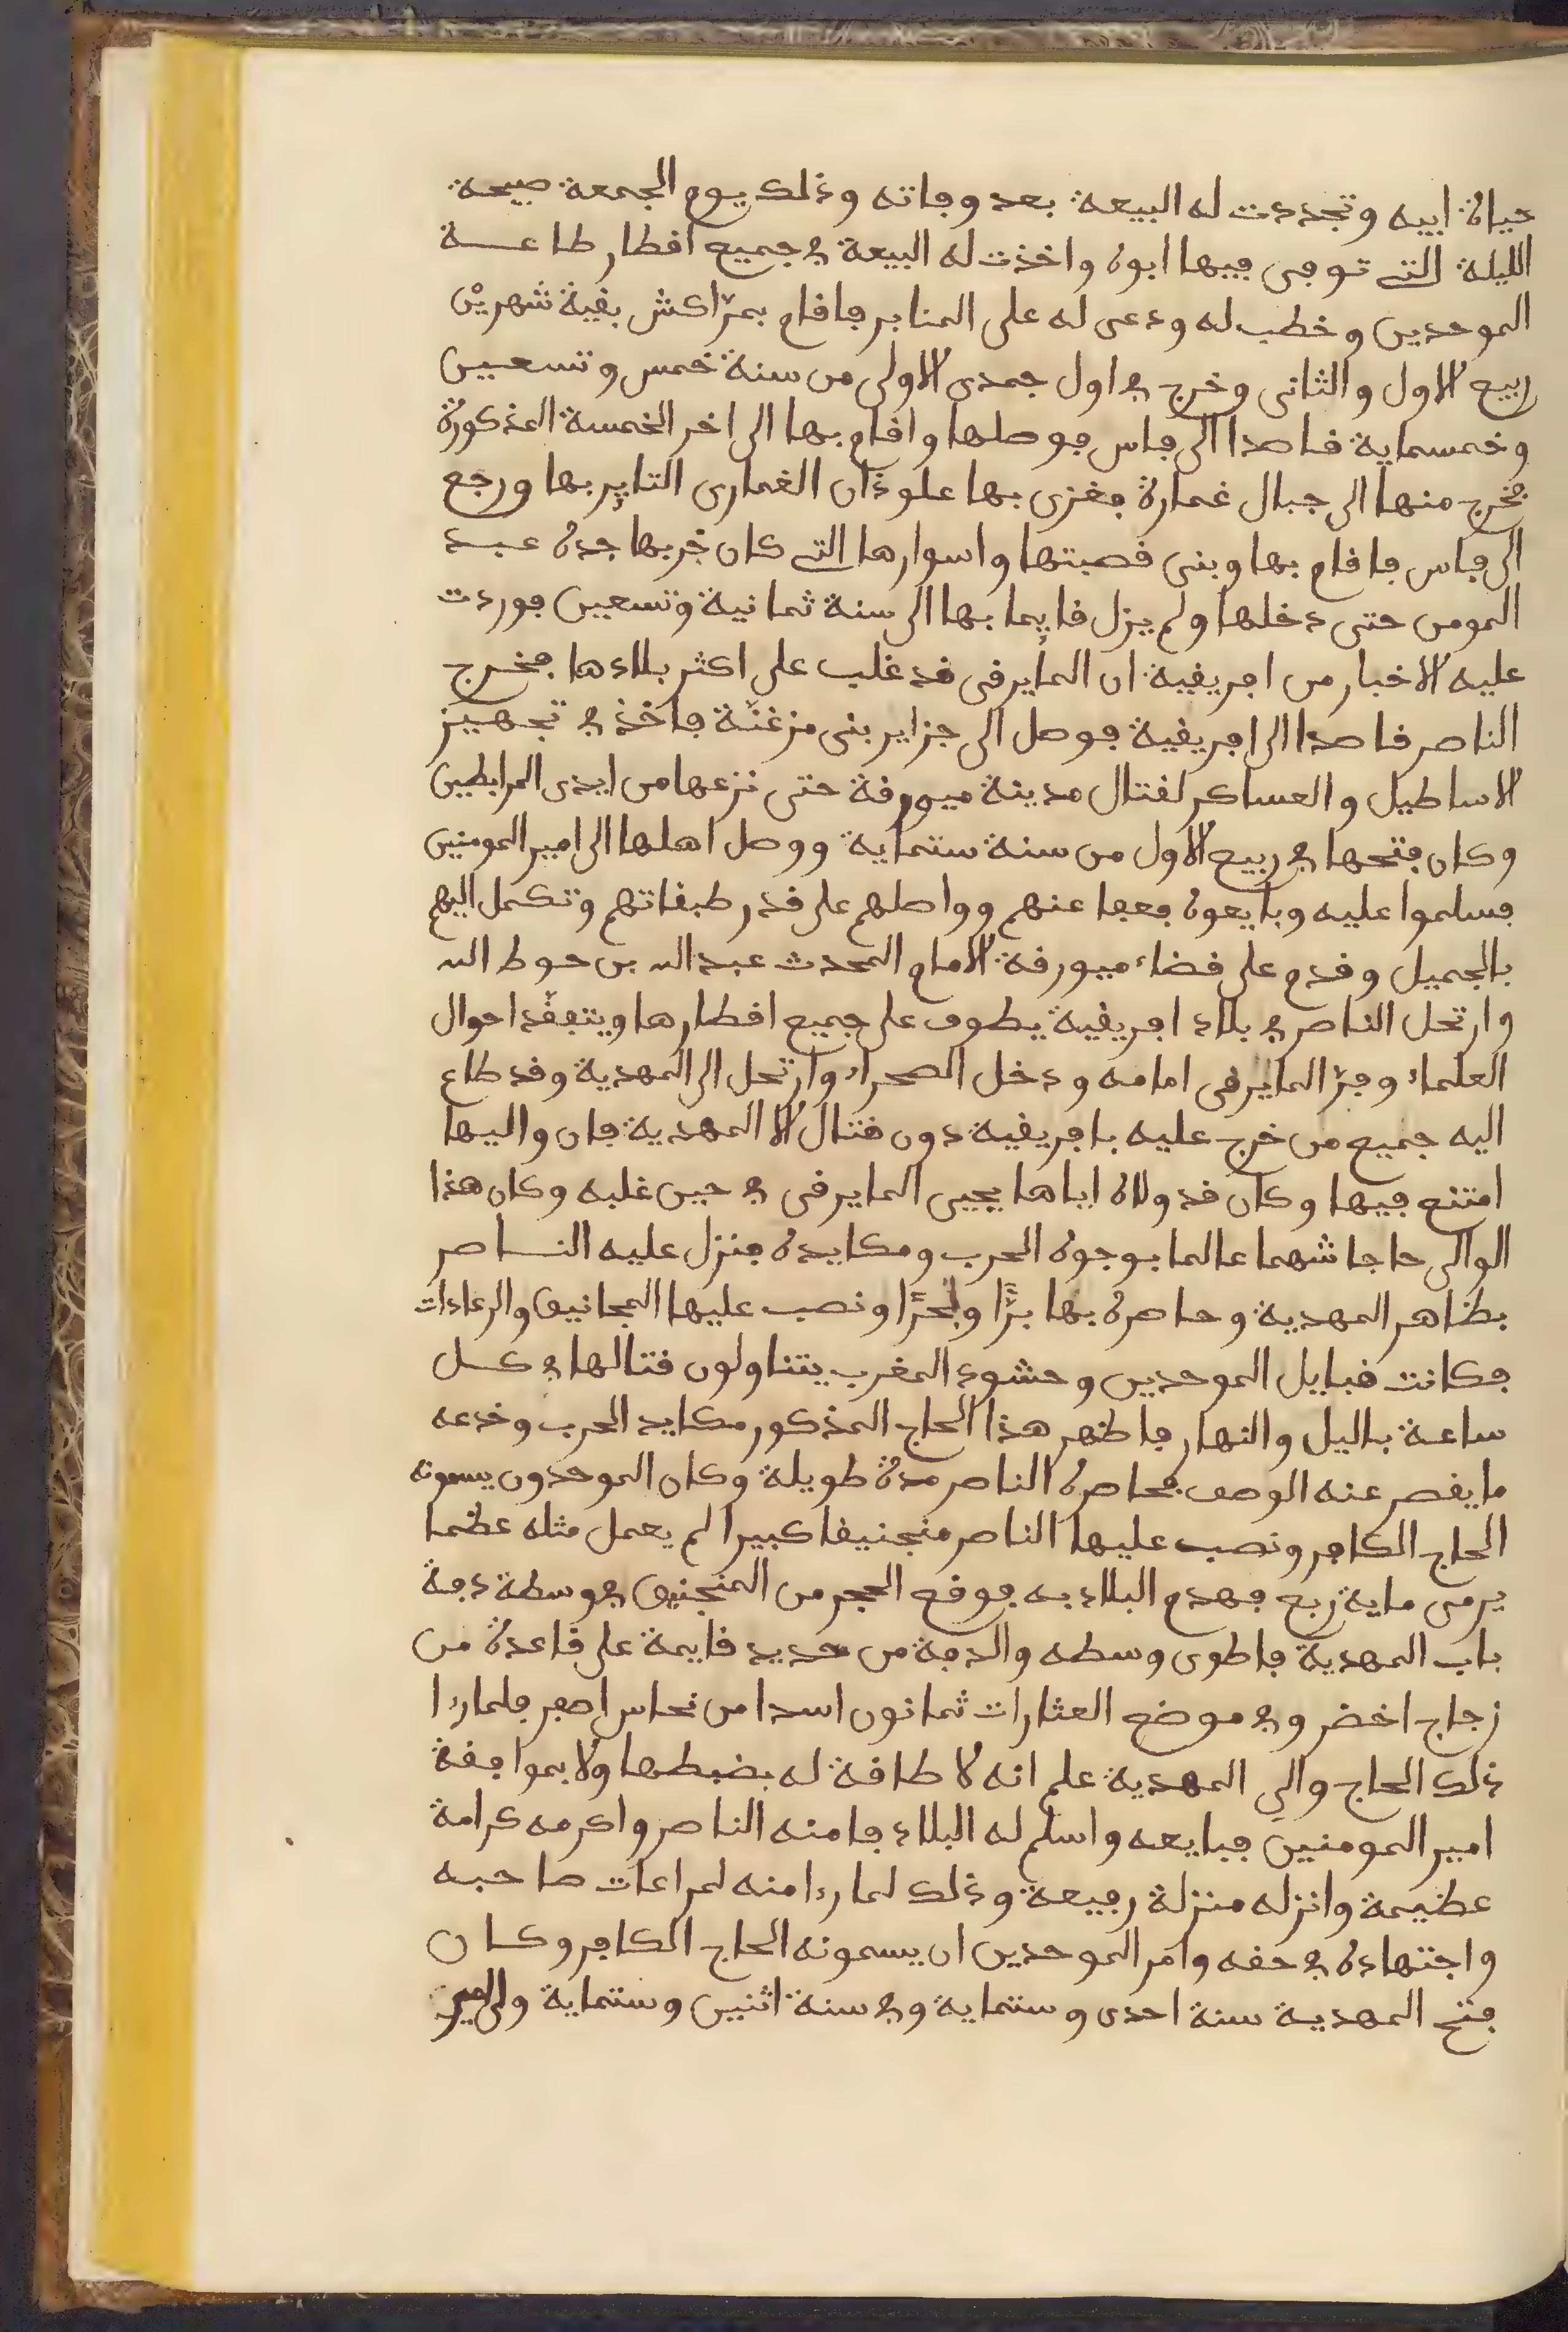 حياة ابيه وتجددت له البيعة بعد وفاته وذلك يوم الجمعة صبيحة
الليلة التى توفى فيها ابوه واخذت له البيعة فى جميع اقطار طاعة
الموحدين وخطب له ودعى له على المنابر فاقام بمرّاكش بقية شهريْن
ربيع الاول والثانى وخرج فى اول جمدى الاولى من سنة خمس وتسعين
وخمسماية قاصدا الى فاس فوصلها واقام بها الى اخر الخمسة المذكورة
فخرج منها الى جبال غمارة فغزى بها علوذان الغمارى الثاير بها ورجع
الى فاس فاقام بها وبنى قصبتها واسوارها التى كان خربها جده عبد
المومن حتى دخلها ولم يزل قايما بها الى سنة ثمانية وتسعين فوردت
عليه الاخبار من افريقية ان المايرقى قد غلب على اكثر بلادها فخرج
الناصر قاصدا الى افريقية فوصل الى جزاير بنى مزغنّة فاخذ فى تجهيز
الاساطيل والعساكر لقتال مدينة ميورقة حتى نزعها من ايدى المرابطين
وكان فتحها فى ربيع الاول من سنة ستماية ووصل اهلها الى امير المومنين
فسلموا عليه وبايعوه فعفا عنهم وواصلهم على قدر طبقاتهم وتكمل اليهم
بالجميل وقدم على قضاء ميورقة الامام المحدث عبد الله بن حوط الله
وارتحل الناصر فى بلاد افريقية يطوف على جميع اقطارها ويتفقّد احوال
العلماء وفرّ المايرقى امامه ودخل الصحراء وارتحل الى المهدية وقد طاع
اليه جميع من خرج عليه بافريقية دون قتال الا المهدية فان واليها
امتنع فيها وكان قد ولاه اياها يحيى المايرقى فى حين غلبه وكان هذا
الوالى حاجا شهما عالما بوجوه الحرب ومكايده فنزل عليه الناصر
بظاهر المهدية وحاصره بها برًّا وبحرًا ونصب عليها المجانيق والرعادات
فكانت قبايل الموحدين وحشود المغرب يتناولون قتالها فى كل
ساعة باليل والنهار فاظهر هذا الحاج المذكور مكايد الحرب وخدعه
ما يقصر عنه الوصف فحاصره الناصر مدة طويلة وكان الموحدون يسمونه
الحاج الكافر ونصب عليها الناصر منجنيقا كبيرا لم يعمل مثله عظما
يرمى ماية ربع فهدم البلاد به فوقع الحجر من المنجنيق فى وسطة دفة
باب المهدية فاطوى وسطه والدفة من حديد قايمة على قاعدة من
زجاج اخضر وفى موضع العثارات ثمانون اسدا من نحاس اصفر فلما رءا
ذلك الحاج والى المهدية علم انه لا طاقة له بضبطها ولا بموافقة
امير المومنين فبايعه واسلم له البلاد فامنه الناصر واكرمه كرامة
عظيمة وانزله منزلة رفيعة وذلك لما رءا منه لمراعات صاحبه
واجتهاده فى حقه وامر الموحدين ان يسمونه الحاج الكافر وكان
فتح المهدية سنة احدى وستماية وفى سنة اثنين وستماية ولى